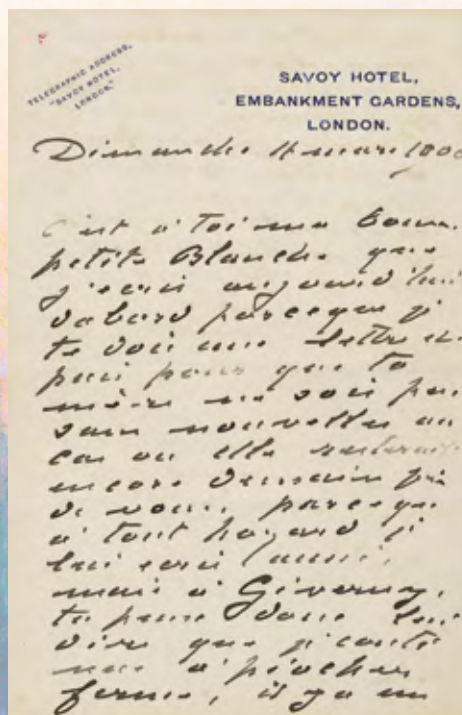 TELEGRAPHIC ADDRESS,
"SAVOY HOTEL,
LONDON."
SAVOY HOTEL,
EMBANKMENT GARDENS,
LONDON.
Dimanche 4 mars
C'est à toi ma bonne
petite Blanche que
j'écris aujourd'hui
dabord parceque je
te dois une lettre et
puis pour que ta
mère ne soit pas
sans nouvelles au
cas ou elle resterait
encore demain près
de vous, parceque
à tout hazard je
lui écris aussi,
mais à Giverny.
tu peux donc lui
dire que
à piocher
ferme, il y a un